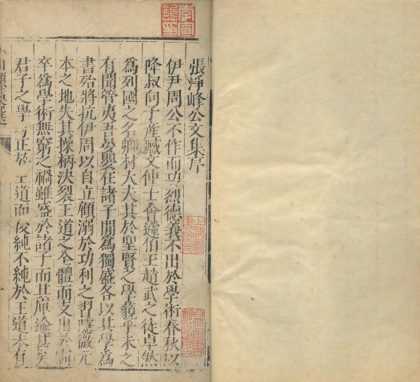 張淨峰公文集序
伊尹周公不作而功烈德義不出於學術春秋以
降叔向子產臧文仲士會蘧伯玉趙武之徒卓然
為列國之名卿材大夫其於聖賢之學義乎未之
有聞管夷吾晏嬰在諸子間為獨盛各以其學為
書殆將抗伊周以自立顧溺於功利之習隳微元
本之地失其操柄決裂王道之全體而又出於霸
卒為學術無窮之禍雖盛於諸子而其庳逾甚矣
君子之學 正 王道而 後純不純於王道未有